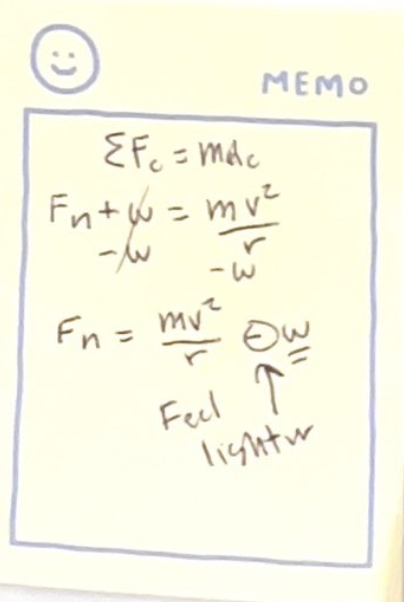 MEMO
ΣFc = mac
Fn + w = mv²/r
-w -w
Fn = mv²/r ⊖ w
Feel
lighter